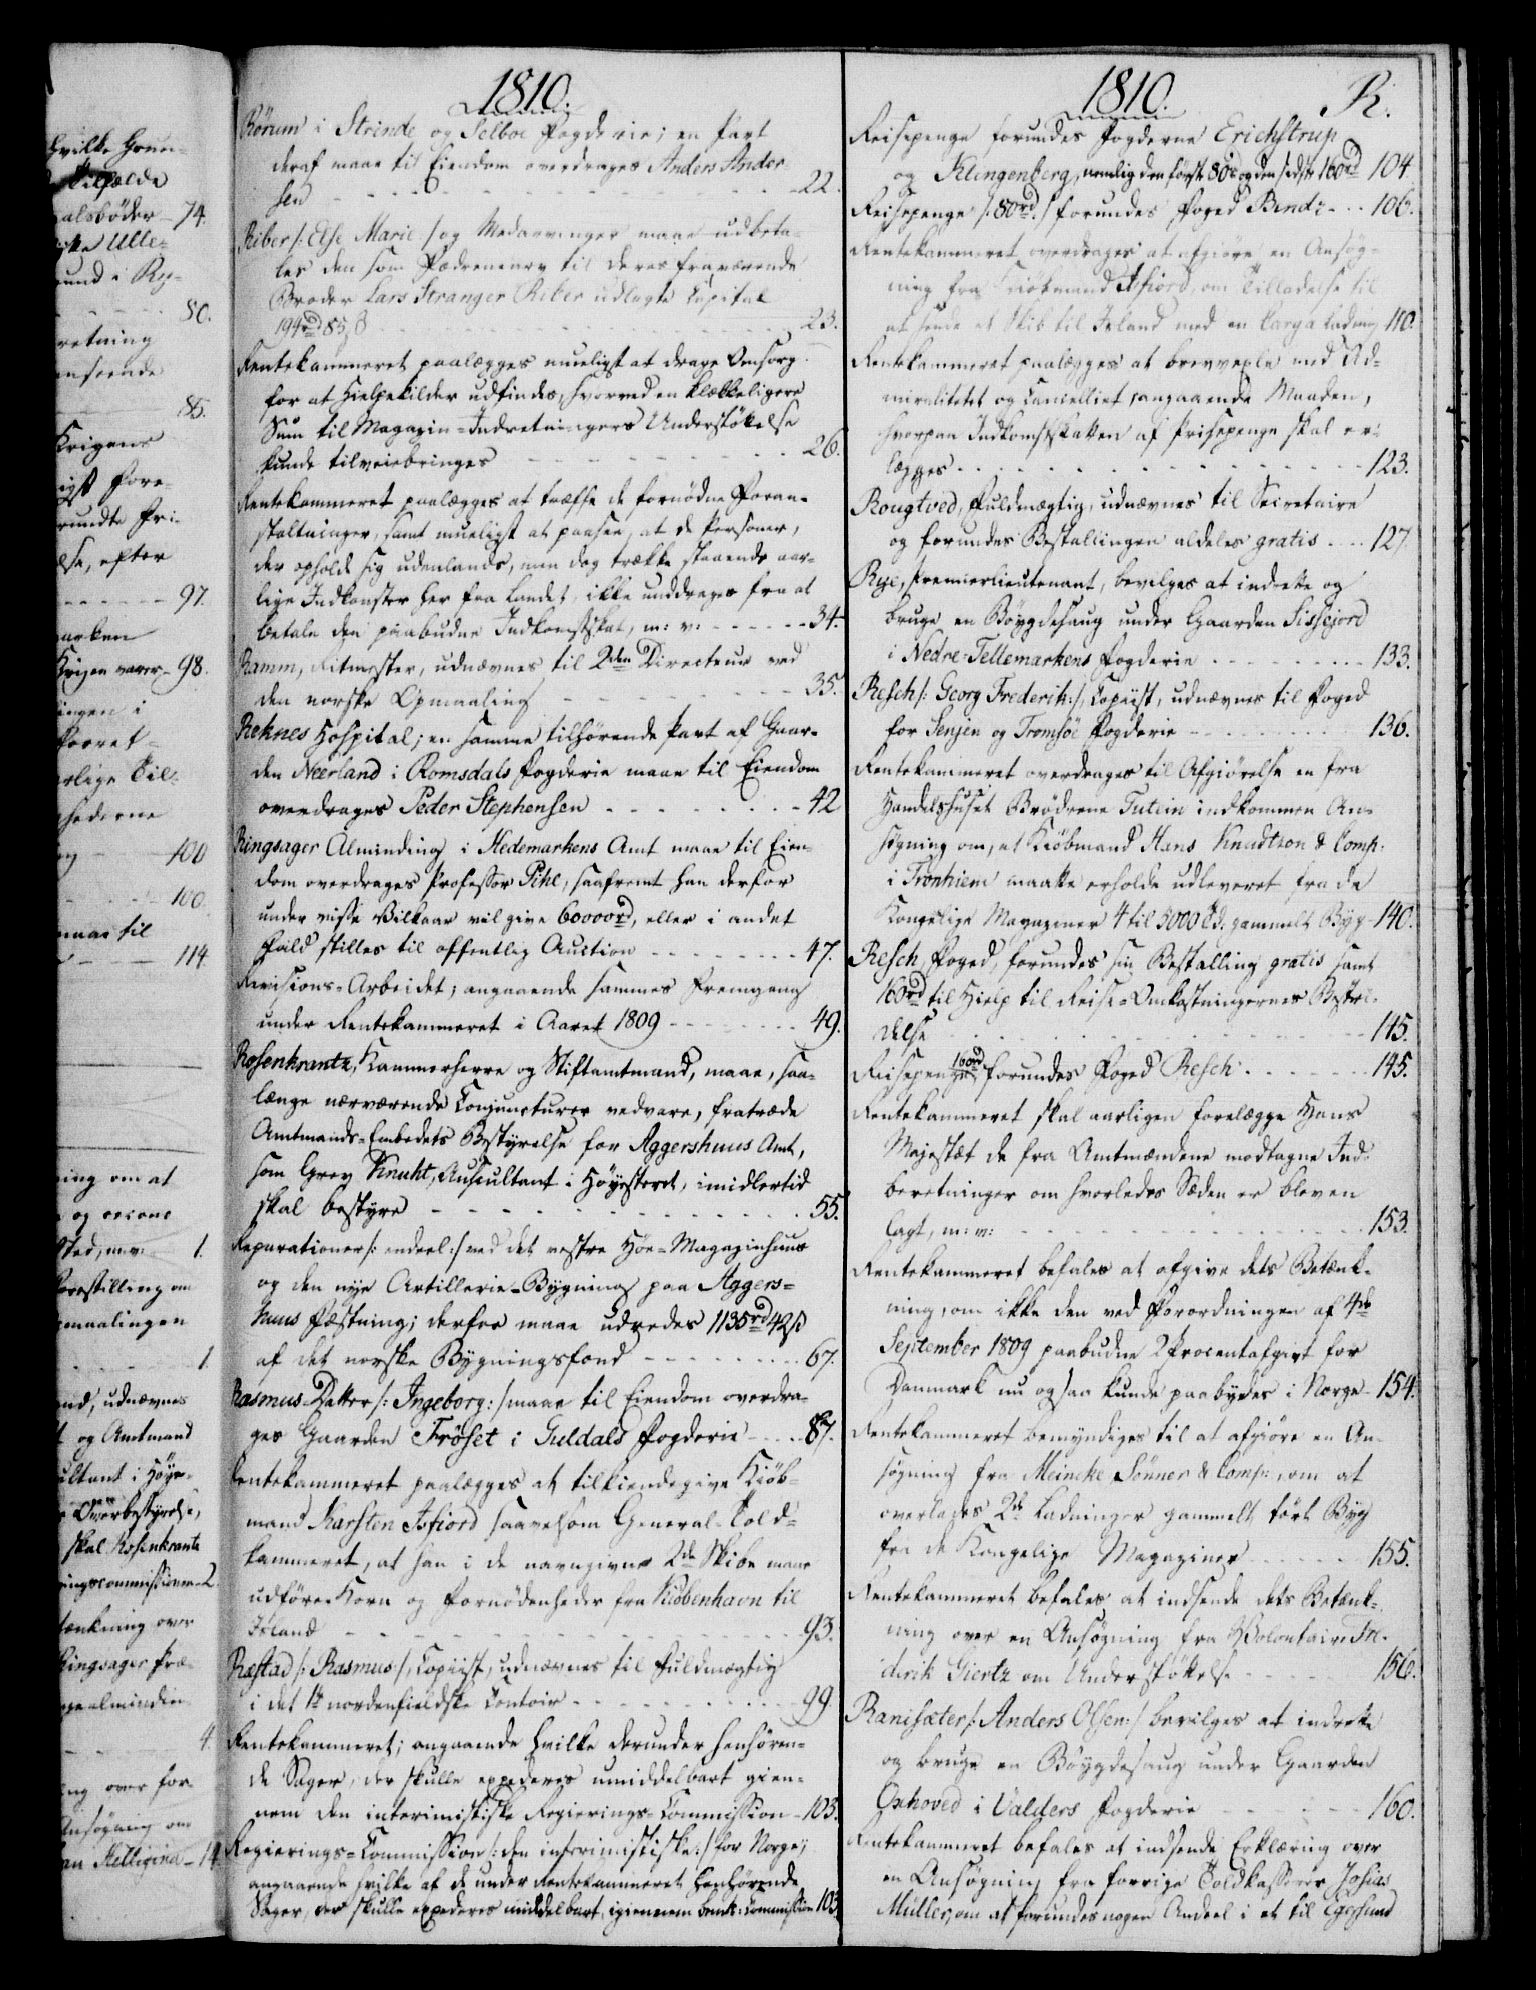 hvilke Grun-
Tilfælde
alsbøder - 74.
ske Ulle-
und i Ry-
80.
retning
enseende
85.
Krigens
igst fore-
rundte Pri-
else, efter
97.
arken
Krigen varer - 98.
ingen i
forret-
rlige Til-
hederne
100
100.
maae til
114.
ning om at
og
sted, m.v: 1.
Forestilling om
pmaalingen
1.
and, udnævnes
og Amtmand
ultant i Høye-
Overbestyrelse,
skal Rosenkrantz
ringscommissionen - 2.
tænkning over
Ringsager Præ-
gealmindin-
4.
ng over for-
Ansøgning om
14
1810.
Rörum i Strinde og Selboe Fogderie; en Part
deraf maae til Eiendom overdrages Anders Ander-
sen - 22.
Riber /: Else Marie :/ og Medarvinger maae udbeta-
les den som Fædrenearv til deres fraværende
Broder Lars Stranger Riber udlagte Capital
194rd 85 ß - 23.
Rentekammeret paalægges mueligst at drage Omsorg
for at Hielpekilder udfindes, hvorved en klækkeligere
Sum til Magazin-Indretningers Understøttelse
kunde tilveiebringes - 26.
Rentekammeret paalægges at træffe de fornødne Foran-
staltninger, samt mueligst at paasee, at de Personer,
der opholde sig udenlands, men dog trække staaende aar-
lige Indkomster her fra Landet, ikke unddrages fra at
betale den paabudne Indkomstskat, m: v: - 34.
Ramm, Ritmester, udnævnes til 2den Directeur ved
den norske Opmaaling - 35.
Reknes Hospital; en samme tilhørende Part af Gaar-
den Neerland i Romsdals Fogderie maae til Eiendom
overdrages Peder Stephensen - 42
Ringsager Alminding i Hedemarkens Amt maae til Eien-
dom overdrages Professor Pihl, saafremt han derfor
under visse Vilkaar vil give 60000rd, eller i andet
Fald stilles til offentlig Auction - 47.
Revisions-Arbeidet; angaaende sammes Fremgang
under Rentekammeret i Aaret 1809 - 49.
Rosenkrantz, Kammerherre og Stiftamtmand, maae, saa-
længe nærværende Conjuncturer vedvare, fratræde
Amtmands-Embedets Bestyrelse for Aggershuus Amt,
som Grev Knuht, Auscultant i Höyesteret, imidlertid
skal bestyre - 55.
Reparationer /: endeel :/ ved det vestre Höe-Magazinhuus
og den nye Artillerie-Bygning paa Aggers-
huus Fæstning; derfor maae udredes 1135rd 42ß
af det norske Bygningsfond - 67.
Rasmus-Datter /: Ingeborg: / maae til Eiendom overdra-
ges Gaarden Fröset i Guldals Fogderie - 87.
Rentekammeret paalægges at tilkiendegive Kiöb-
mand Karsten Isfiord saavelsom General-Told-
kammeret, at han i de navngivne 2de Skibe maae
udföre Korn og Fornödenheder fra Kiöbenhavn til
Island - 93.
Ræstad /: Rasmus :/, Copiist, udnævnes til Fuldmægtig
i det 1te nordenfieldske Contoir - 99
Rentekammeret; angaaende hvilke derunder henhören-
de Sager, der skulle expederes umiddelbart gien-
nem den interimistiske Regierings-Commission - 103.
Regierings-Commission /: den interimistiske: / for Norge;
angaaende hvilke af de under Rentekammeret henhörende
Sager, der skulle expederes middelbart, igiennem bemte: Commission 103.
1810. R.
Reisepenge forundes Fogderne Erichstrup
og Klingenberg, nemlig den første 80rd og den sidste 160rd 104
Reisepenge /: 80rd :/ forundes Foged Bendz - 106.
Rentekammeret overdrages at afgiöre en Ansög-
ning fra Kiöbmand Isfiord, om Tilladelse til
at sende et Skib til Island med en Carga Ladning 110.
Rentekammeret paalægges at brevvexle med Ad-
miralitetet og Cancelliet, angaaende Maaden,
hvorpaa Indkomstskatten af Prisepenge skal er-
lægges - 123.
Rougtved, Fuldmægtig, udnævnes til Secretaire
og forundes Bestallingen aldeles gratis - 127
Rye, Premierlieutenant, bevilges at indrette og
bruge en Böygdesaug under Gaarden Sissejord
i Nedre-Tellemarkens Fogderie - 133.
Resch /: Georg Frederik: /, Copiist, udnævnes til Foged
for Senjen og Tromsöe Fogderie - 136.
Rentekammeret overdrages til Afgiörelse en fra
Handelshuset Brödrene Tutein indkommen An-
sögning om, at Kiöbmand Hans Knudtzon & Comp:
i Tronhiem maatte erholde udleveret fra de
Kongelige Magaziner 4 til 5000 Td. gammelt Byg - 140.
Resch, Foged, forundes sin Bestalling gratis samt
160rd til Hielp til Reise-Omkostningernes Bestri-
delse - 145.
Reisepenge 160rd forundes Foged Resch - 145.
Rentekammeret skal aarligen forelægge Hans
Majestæt de fra Amtmændene modtagne Ind-
beretninger om hvorledes Sæden er bleven
lagt, m: v: - 153.
Rentekammeret befales at afgive dets Betænk-
ning, om ikke den ved Forordningen af 4de
September 1809 paabudne 2 Procentafgivt for
Danmark nu ogsaa kunde paabydes i Norge - 154.
Rentekammeret bemyndiges til at afgiöre en An-
sögning fra Meincke Sönner & Comp:, om at
overlades 2de Ladninger gammelt tört Byg
fra de Kongelige Magaziner - 155.
Rentekammeret befales at indsende dets Betænk-
ning over en Ansögning fra Volontair Fre-
derik Giertz om Understöttelse - 156.
Ranisæter /: Anders Olsen: / bevilges at indrette
og bruge en Böygdesaug under Gaarden
Oxhoved i Valders Fogderie - 160.
Rentekammeret befales at indsende Erklæring over
en Ansögning fra forrige Toldkasserer Josias
Müller, om at forundes nogen Andeel i et til Egersund